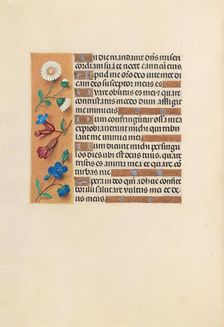 In die mandavit dns miseri
cordiam suā et nocte canticū eius
Apud me oro deo vite mee di
cam deo susceptor meus es
Quare oblitus es mei et quare
contristatus incedo dum affligit
me inimicus
Dum confringuntur ossa mea
exprobraverunt michi qui tribu
lant me inimici mei
Dum dicunt michi per singu
los dies ubi est deus tuus quare
tristis es anima mea et quare co
turbas me
Spera in deo quō adhuc confite
bor illi salutare vultus mei et de
us meus